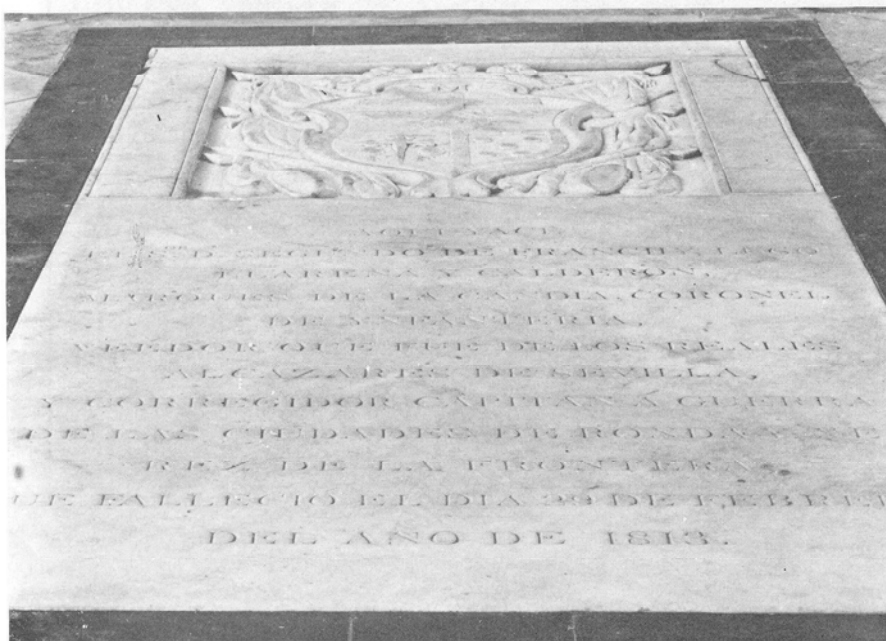 AQUI YACE
D. SEGUNDO DE FRANCHY, LUGO
Y CALDERÓN,
MARQUES DE LA CANDIA, CORONEL
DE YNFANTERIA,
VEEDOR QUE FUE DE LOS REALES
ALCAZARES DE SEVILLA,
Y CORREGIDOR CAPITAN Á GUERRA
DE LAS CIUDADES DE RONDA Y XE
REZ DE LA FRONTERA
UE FALLECIÓ EL DIA DE FEBRE
DEL AÑO DE 1813.